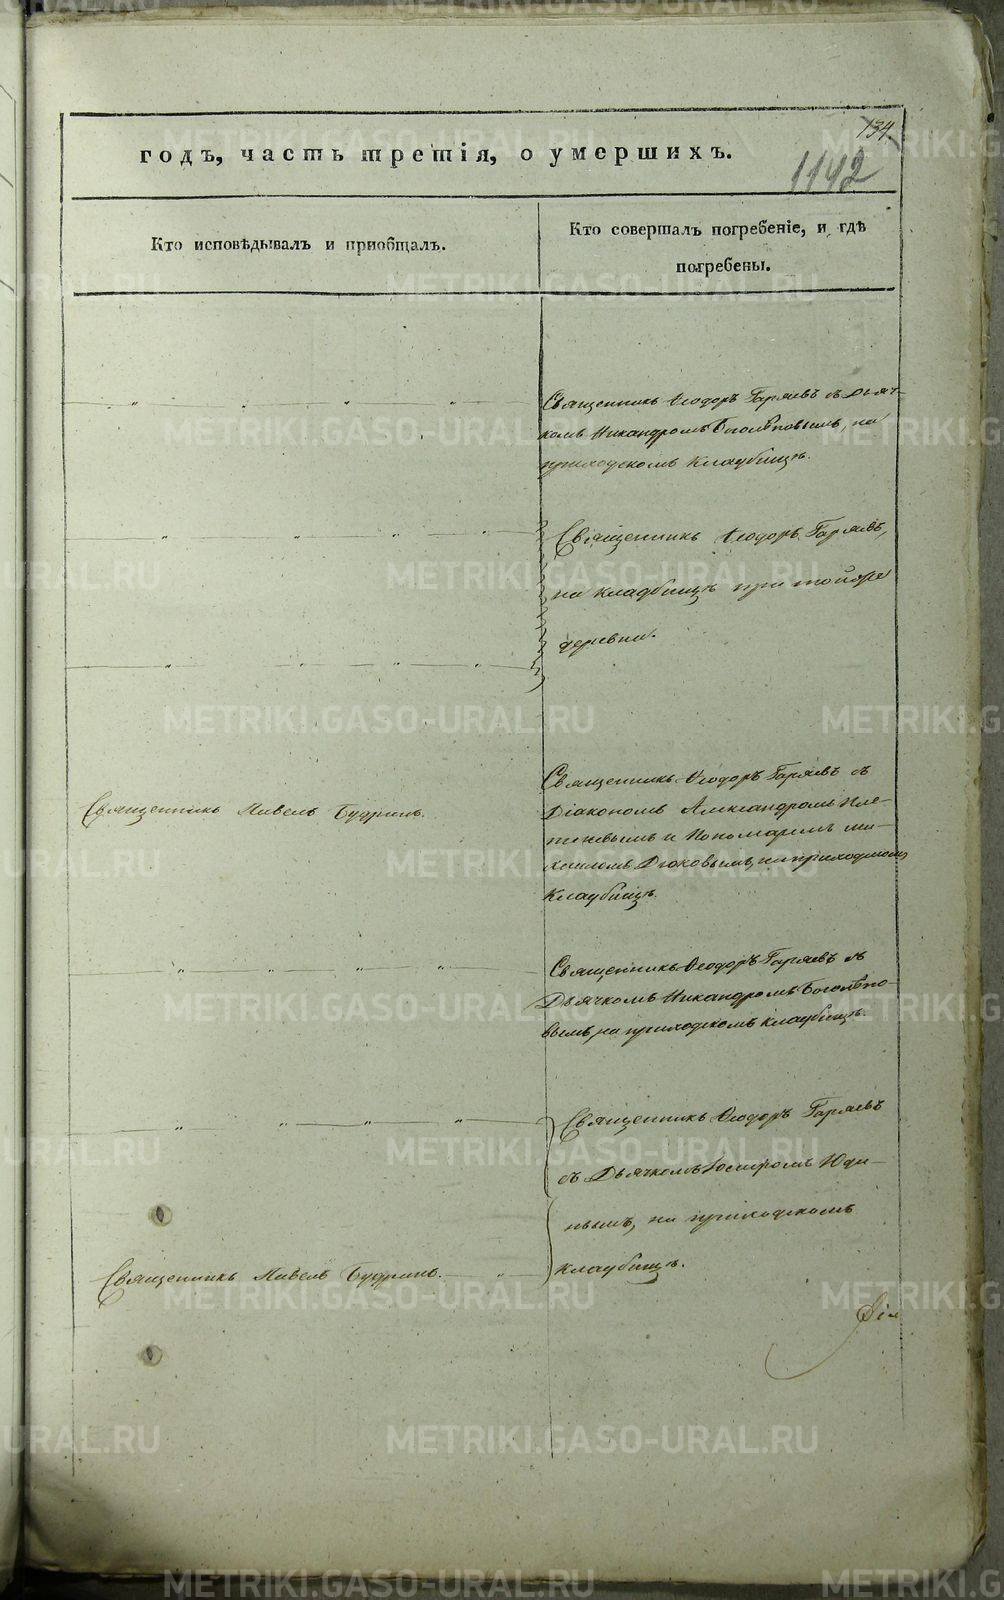 134.
годъ, часть третія, о умершихъ.
1142
Кто исповѣдывалъ и пріобщалъ.
Кто совершалъ погребеніе, и гдѣ
погребены.
Священникъ Ѳеодоръ Гаряевъ съ Дьяч-
комъ Никандромъ Боголѣповымъ, на
приходскомъ кладбищѣ.
Священникъ Ѳеодоръ Гаряевъ,
на кладбищѣ при той же
деревни.
Священникъ Павелъ Будринъ.
Священникъ Ѳеодоръ Гаряевъ съ
Діакономъ Александромъ Пле-
теневымъ и Пономаремъ Ми-
хаиломъ Дюковымъ, на приходскомъ
кладбищѣ.
Священникъ Ѳеодоръ Гаряевъ съ
Дьячкомъ Никандромъ Боголѣпо-
вымъ, на приходскомъ кладбищѣ.
Священникъ Ѳеодоръ Гаряевъ
съ Дьячкомъ Юди-
нымъ, на приходскомъ
кладбищѣ.
Священникъ Павелъ Будринъ.
METRIKI.GASO-URAL.RU